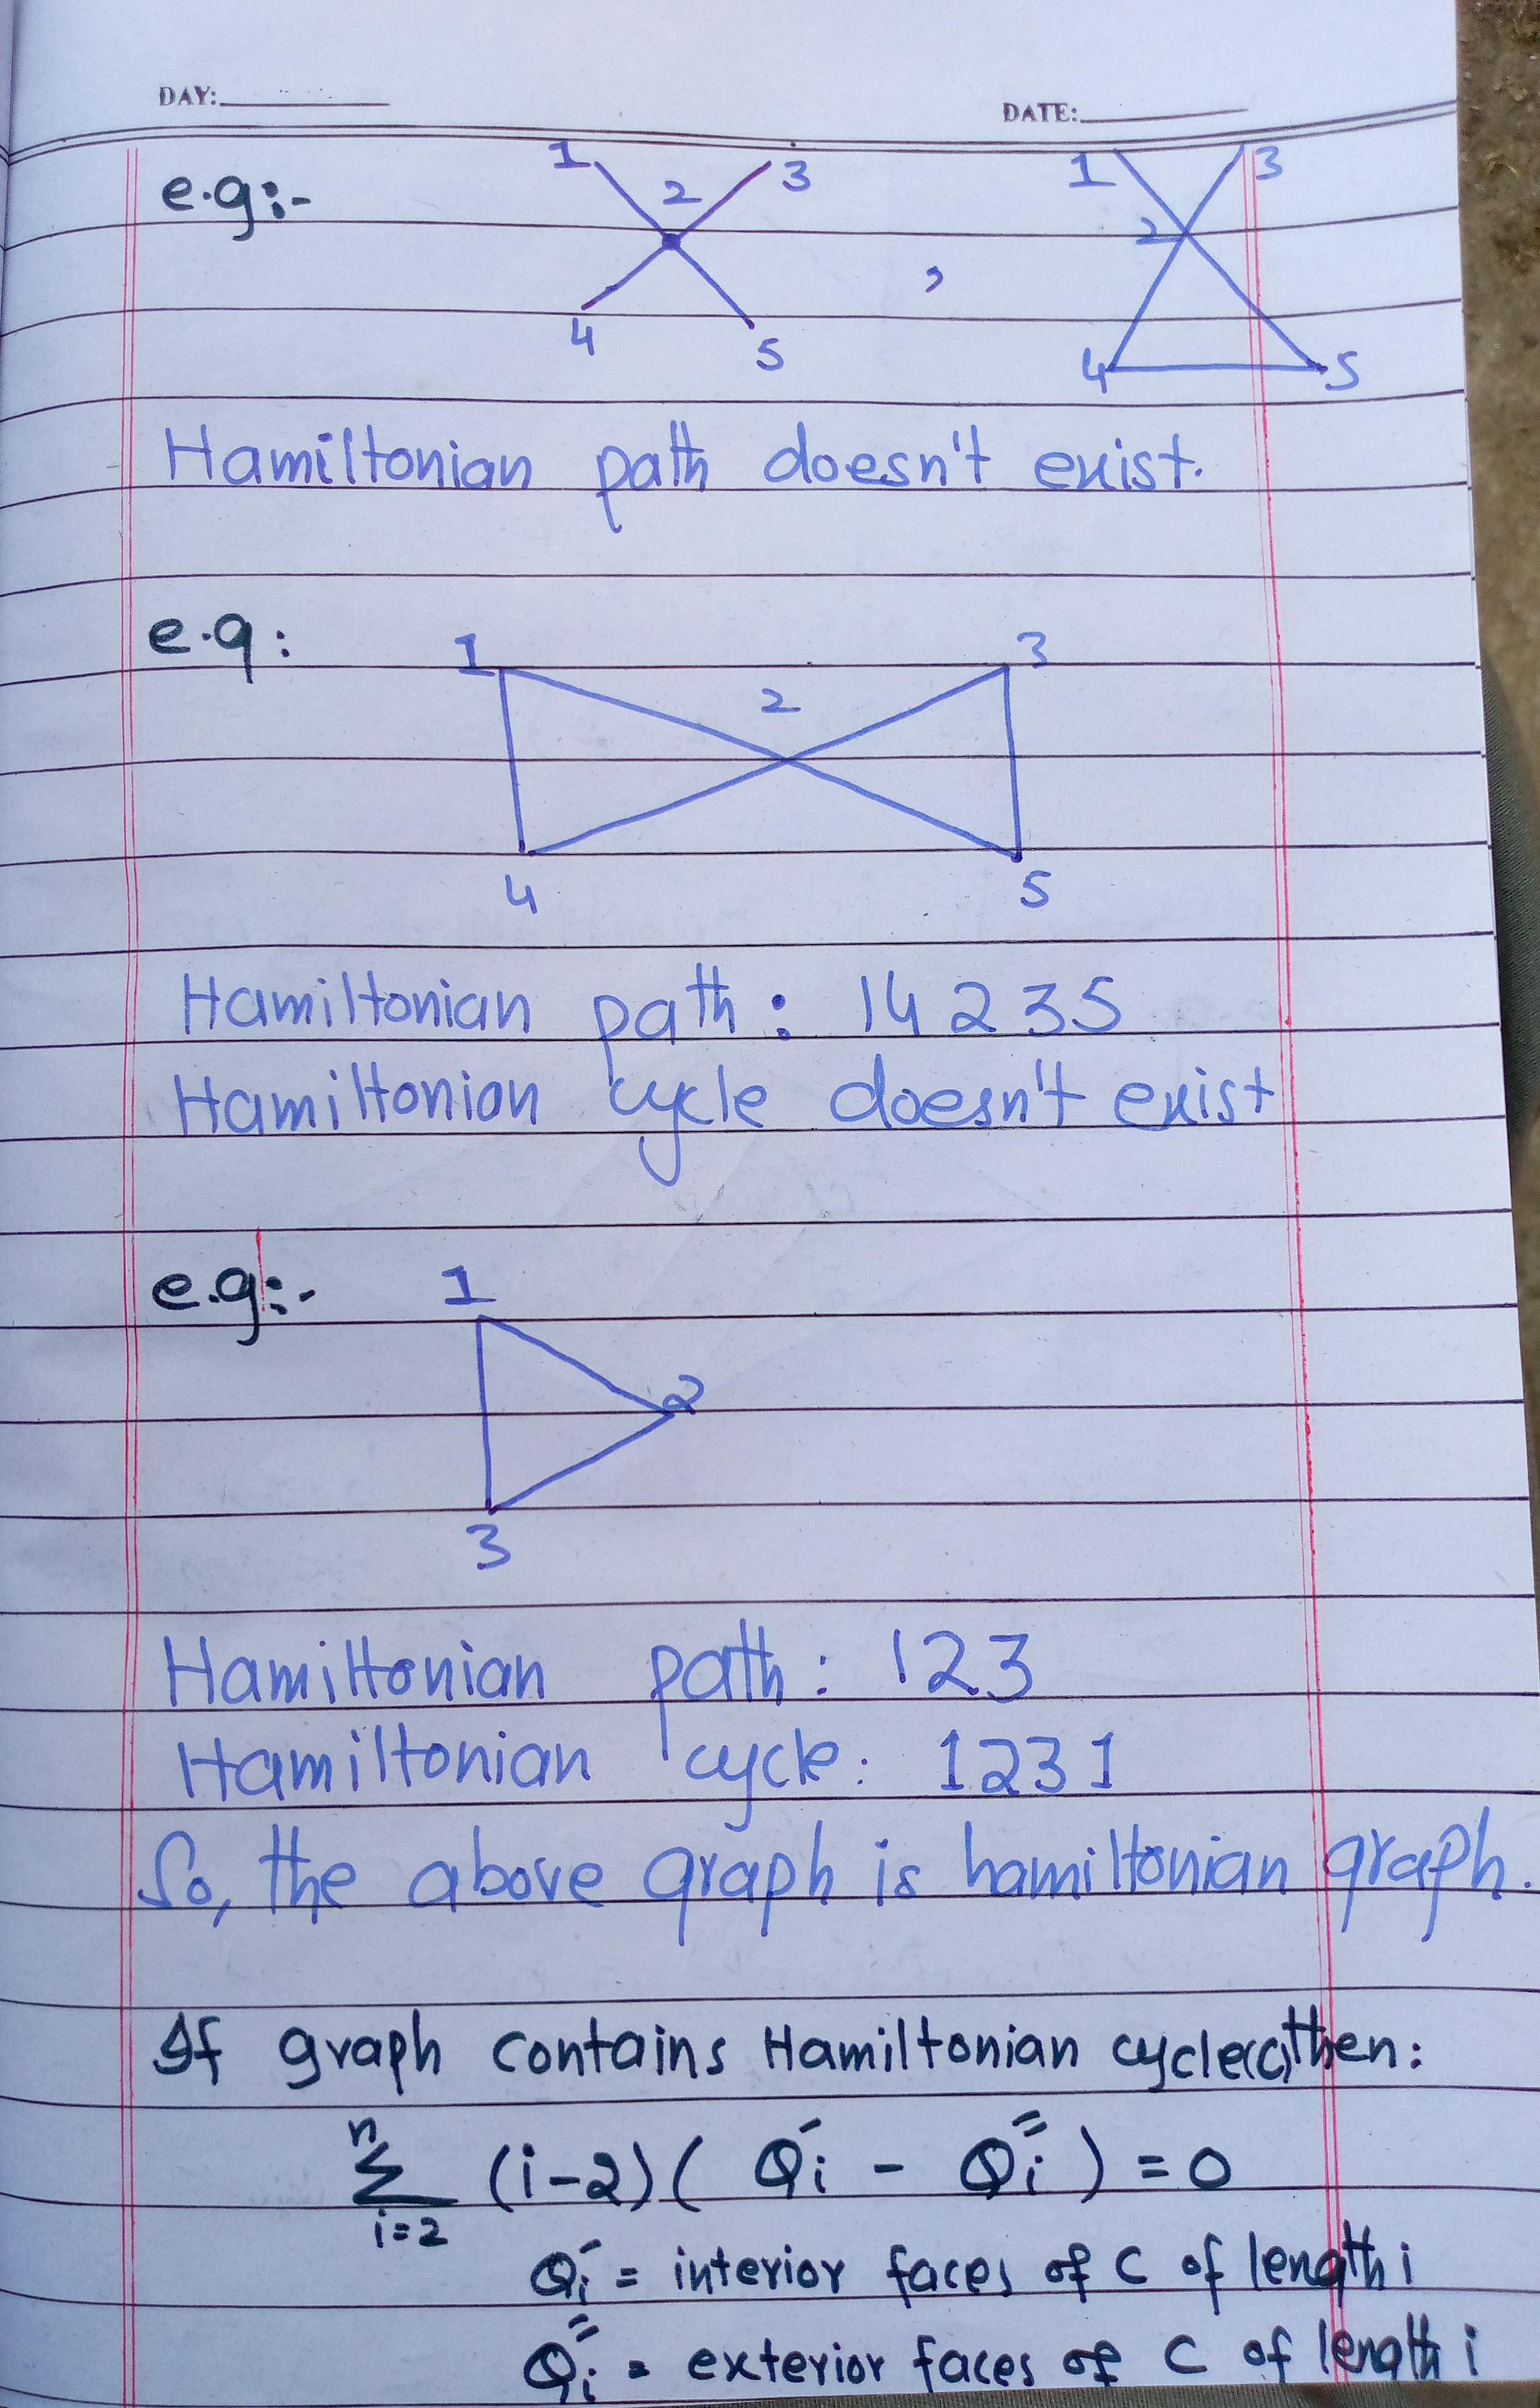 DAY:
DATE:
e.g:-
1 2 3 4 5 , 1 2 3 4 5
Hamiltonian path doesn't exist.
e.g:
1 2 3
4 5
Hamiltonian path: 14235
Hamiltonian cycle doesn't exist
e.g:-
1
2
3
Hamiltonian path: 123
Hamiltonian cycle: 1231
So, the above graph is hamiltonian graph.
If graph contains Hamiltonian cycle(c), then:
n
∑ (i-2)( Qi′ - Qi″ ) = 0
i=2
Qi′ = interior faces of C of length i
Qi″ = exterior faces of C of length i